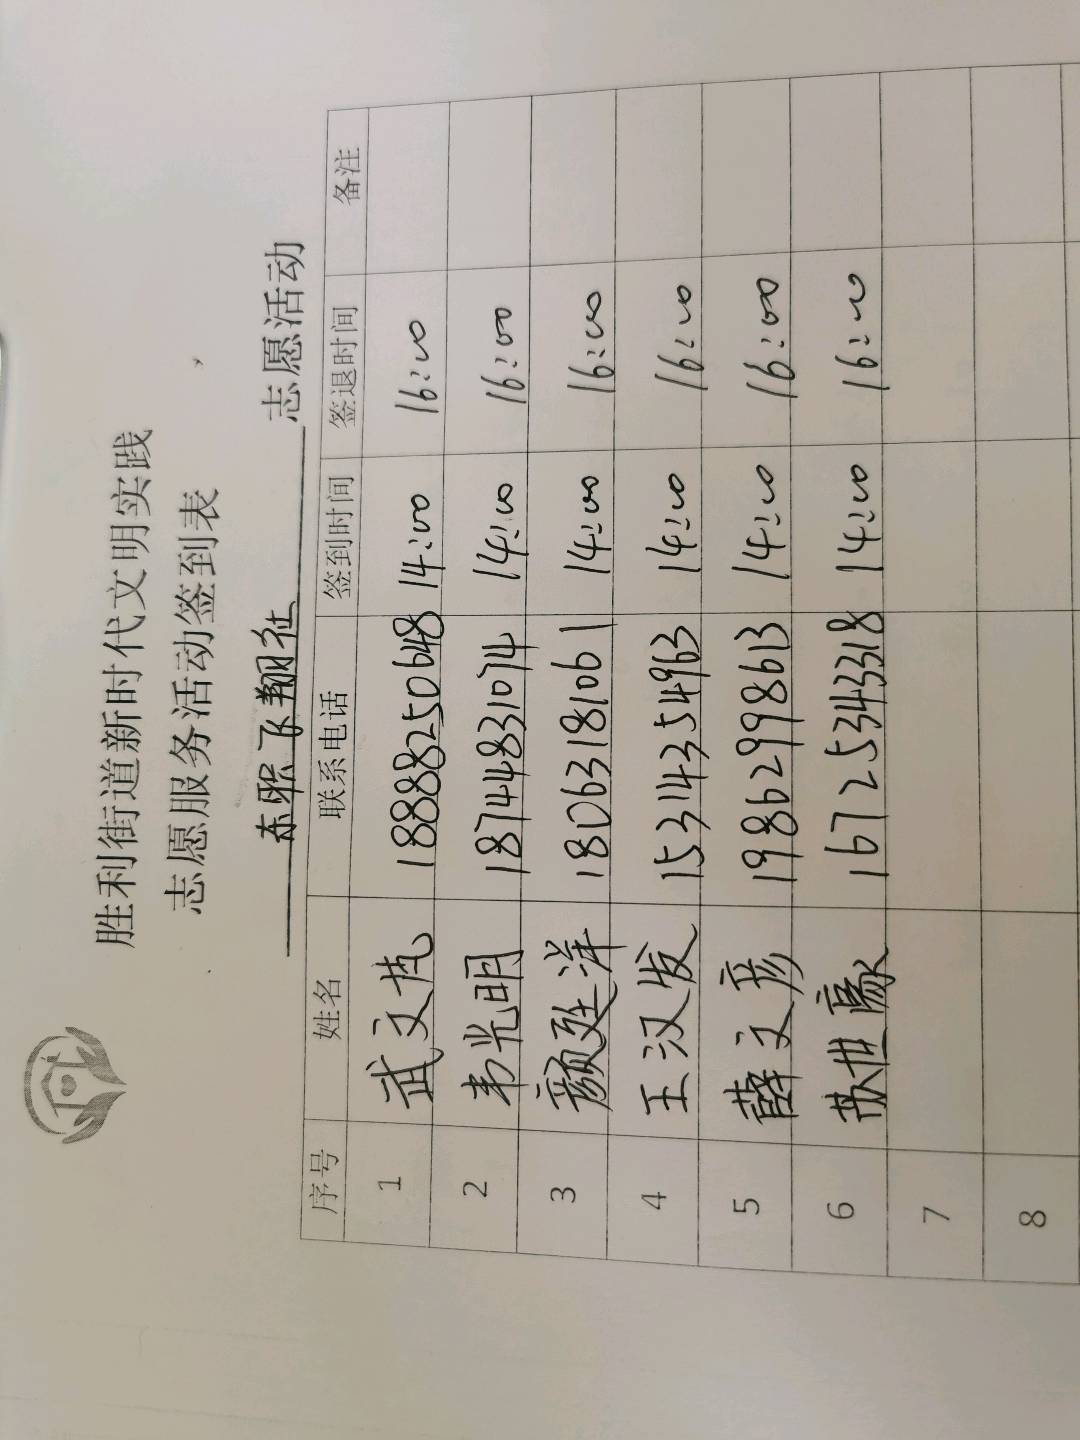 胜利街道新时代文明实践
志愿服务活动签到表
东职飞翔社 志愿活动
序号 姓名 联系电话 签到时间 签退时间 备注
1 武文艺 18888250648 14:00 16:00
2 韦光明 18744831074 14:00 16:00
3 颜廷洋 18063181061 14:00 16:00
4 王汉发 15314354963 14:00 16:00
5 薛文彦 19862998613 14:00 16:00
6 世豪 16725343318 14:00 16:00
7
8